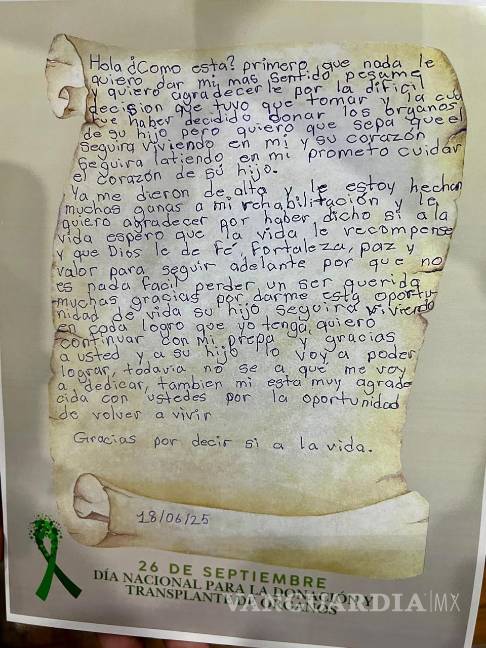 Hola ¿Como esta? primero que nada le
quiero dar mi mas sentido pesame
y quiero agradecerle por la dificil
decision que tuvo que tomar y la cual
fue haber decidido donar los organos
de su hijo pero quiero que sepa que el
seguira viviendo en mi y su corazón
seguira latiendo en mi prometo cuidar
el corazón de su hijo.
Ya me dieron de alta y le estoy hechan
muchas ganas a mi rehabilitación y le
quiero agradecer por haber dicho si a la
vida espero que la vida le recompense
y que Dios le de Fé, Fortaleza, paz y
valor para seguir adelante por que no
es nada facil perder un ser querido
muchas gracias por darme esta oportu-
nidad de vida su hijo seguira viviendo
en cada logro que yo tenga, quiero
continuar con mi prepa y gracias
a usted y a su hijo lo voy a poder
lograr, todavia no se a que me voy
a dedicar, tambien mi está muy agrade
cida con ustedes por la oportunidad
de volver a vivir
Gracias por decir si a la vida.
18/06/25
26 DE SEPTIEMBRE
DÍA NACIONAL PARA LA DONACIÓN Y
TRANSPLANTE DE ÓRGANOS
VANGUARDIA|MX